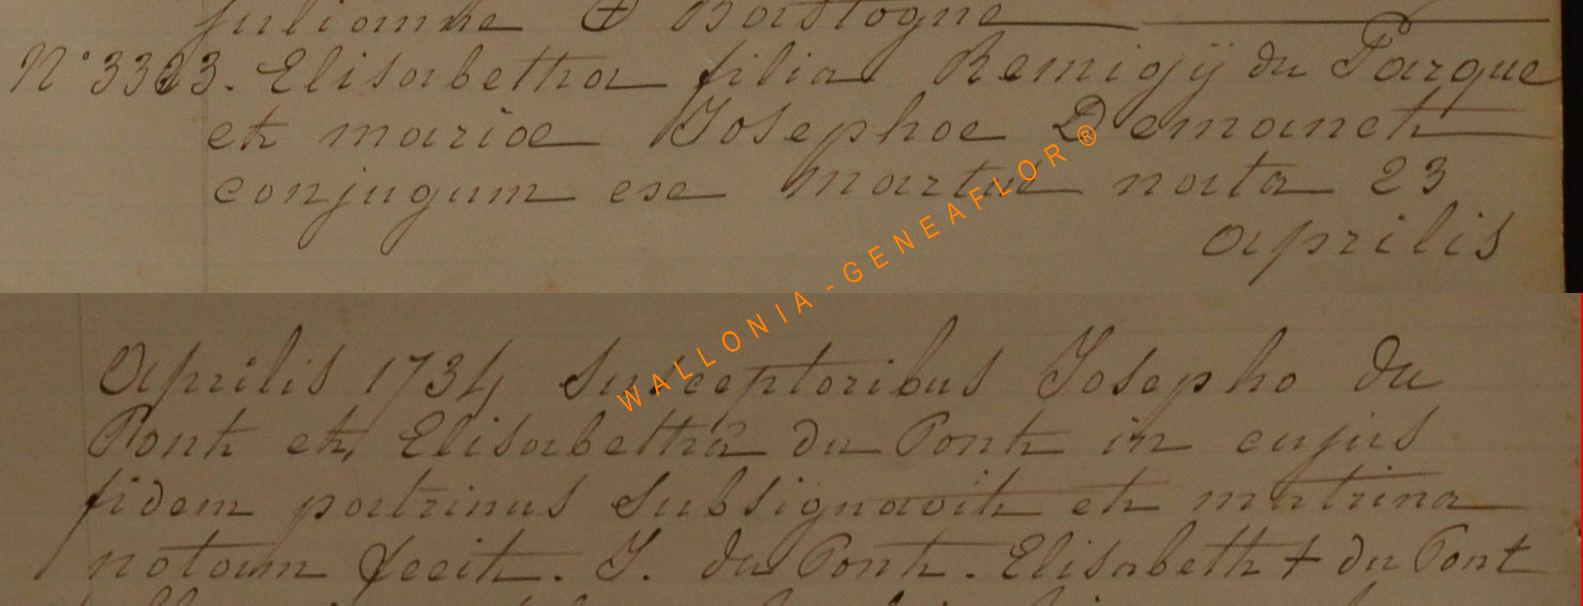 Julienne + Bastogne
N° 3323. Elisabetha filia Remigÿ du Parque
et mariae Josephae Demanet
conjugum ex martue nata 23
aprilis
Aprilis 1734 Susceptoribus Josepho du
Pont et Elisabetha du Pont in cujus
fidem patrinus Subsignavit et matrina
notam fecit. J. du Pont. Elisabeth + du Pont
WALLONIA - GENEAFLOR ®